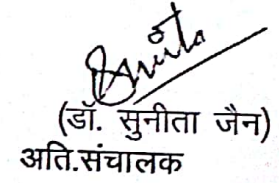 (डॉ. सुनीता जैन)
अति.संचालक